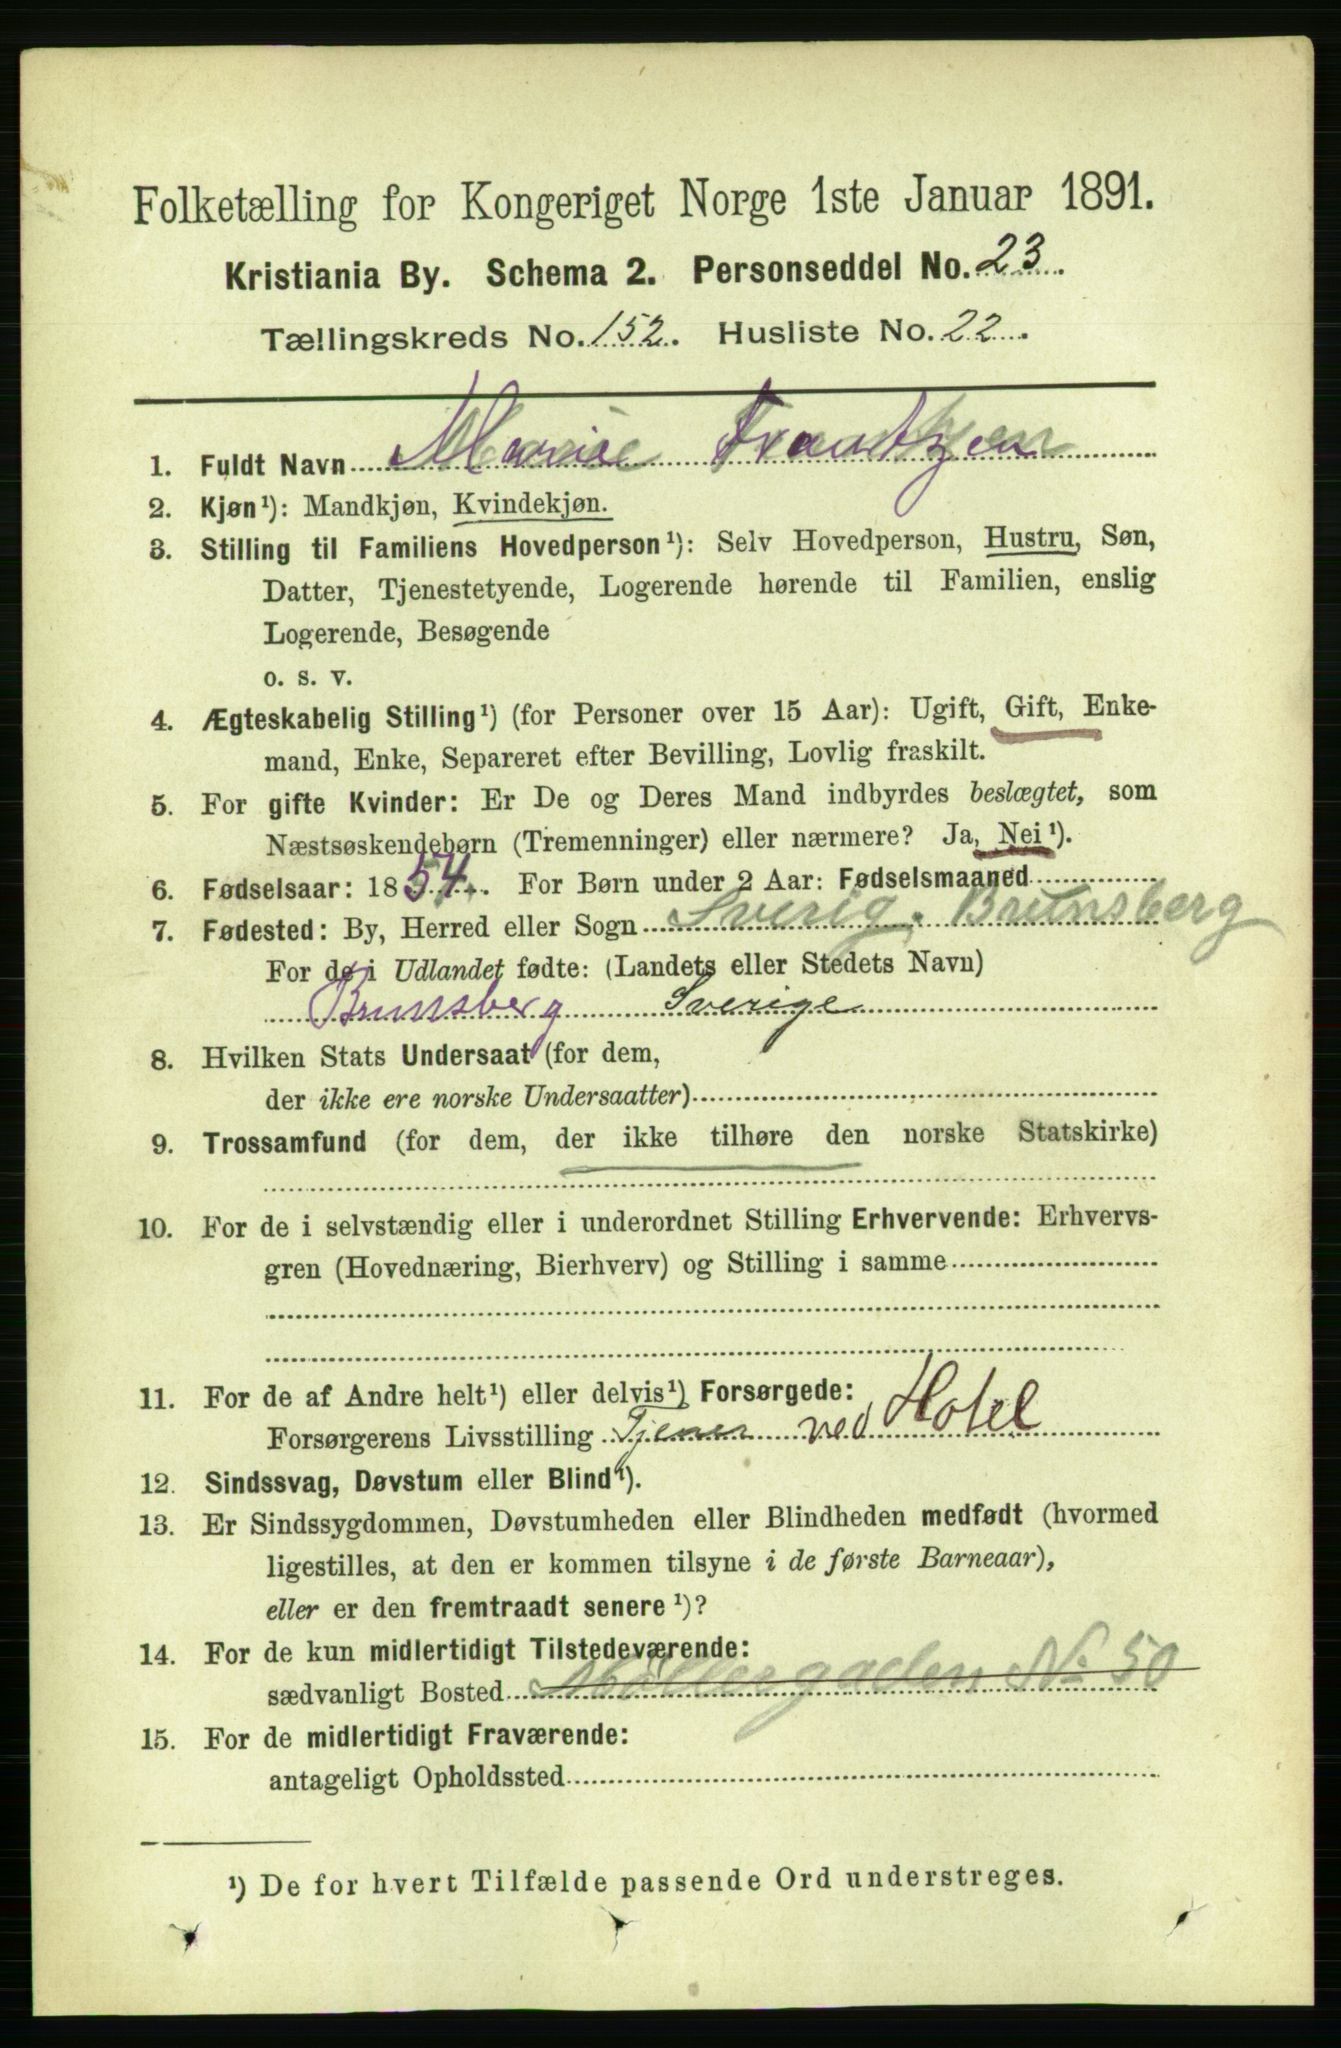 Folketælling for Kongeriget Norge 1ste Januar 1891.
Kristiania By. Schema 2. Personseddel No. 23.
Tællingskreds No. 152. Husliste No. 22.
1. Fuldt Navn Marie Frantzen
2. Kjøn¹): Mandkjøn, Kvindekjøn.
3. Stilling til Familiens Hovedperson¹): Selv Hovedperson, Hustru, Søn,
Datter, Tjenestetyende, Logerende hørende til Familien, enslig
Logerende, Besøgende
o. s. v.
4. Ægteskabelig Stilling¹) (for Personer over 15 Aar): Ugift, Gift, Enke-
mand, Enke, Separeret efter Bevilling, Lovlig fraskilt.
5. For gifte Kvinder: Er De og Deres Mand indbyrdes beslægtet, som
Næstsøskendebørn (Tremenninger) eller nærmere? Ja, Nei¹).
6. Fødselsaar: 1854. For Børn under 2 Aar: Fødselsmaaned
7. Fødested: By, Herred eller Sogn Sverig. Brunsberg
For de i Udlandet fødte: (Landets eller Stedets Navn)
Brunsberg Sverige
8. Hvilken Stats Undersaat (for dem,
der ikke ere norske Undersaatter)
9. Trossamfund (for dem, der ikke tilhøre den norske Statskirke)
10. For de i selvstændig eller i underordnet Stilling Erhvervende: Erhvervs-
gren (Hovednæring, Bierhverv) og Stilling i samme
11. For de af Andre helt¹) eller delvis¹) Forsørgede:
Forsørgerens Livsstilling Tjener ved Hotel
12. Sindssvag, Døvstum eller Blind¹).
13. Er Sindssygdommen, Døvstumheden eller Blindheden medfødt (hvormed
ligestilles, at den er kommen tilsyne i de første Barneaar),
eller er den fremtraadt senere¹)?
14. For de kun midlertidigt Tilstedeværende:
sædvanligt Bosted Möllergaden No 50
15. For de midlertidigt Fraværende:
antageligt Opholdssted
¹) De for hvert Tilfælde passende Ord understreges.